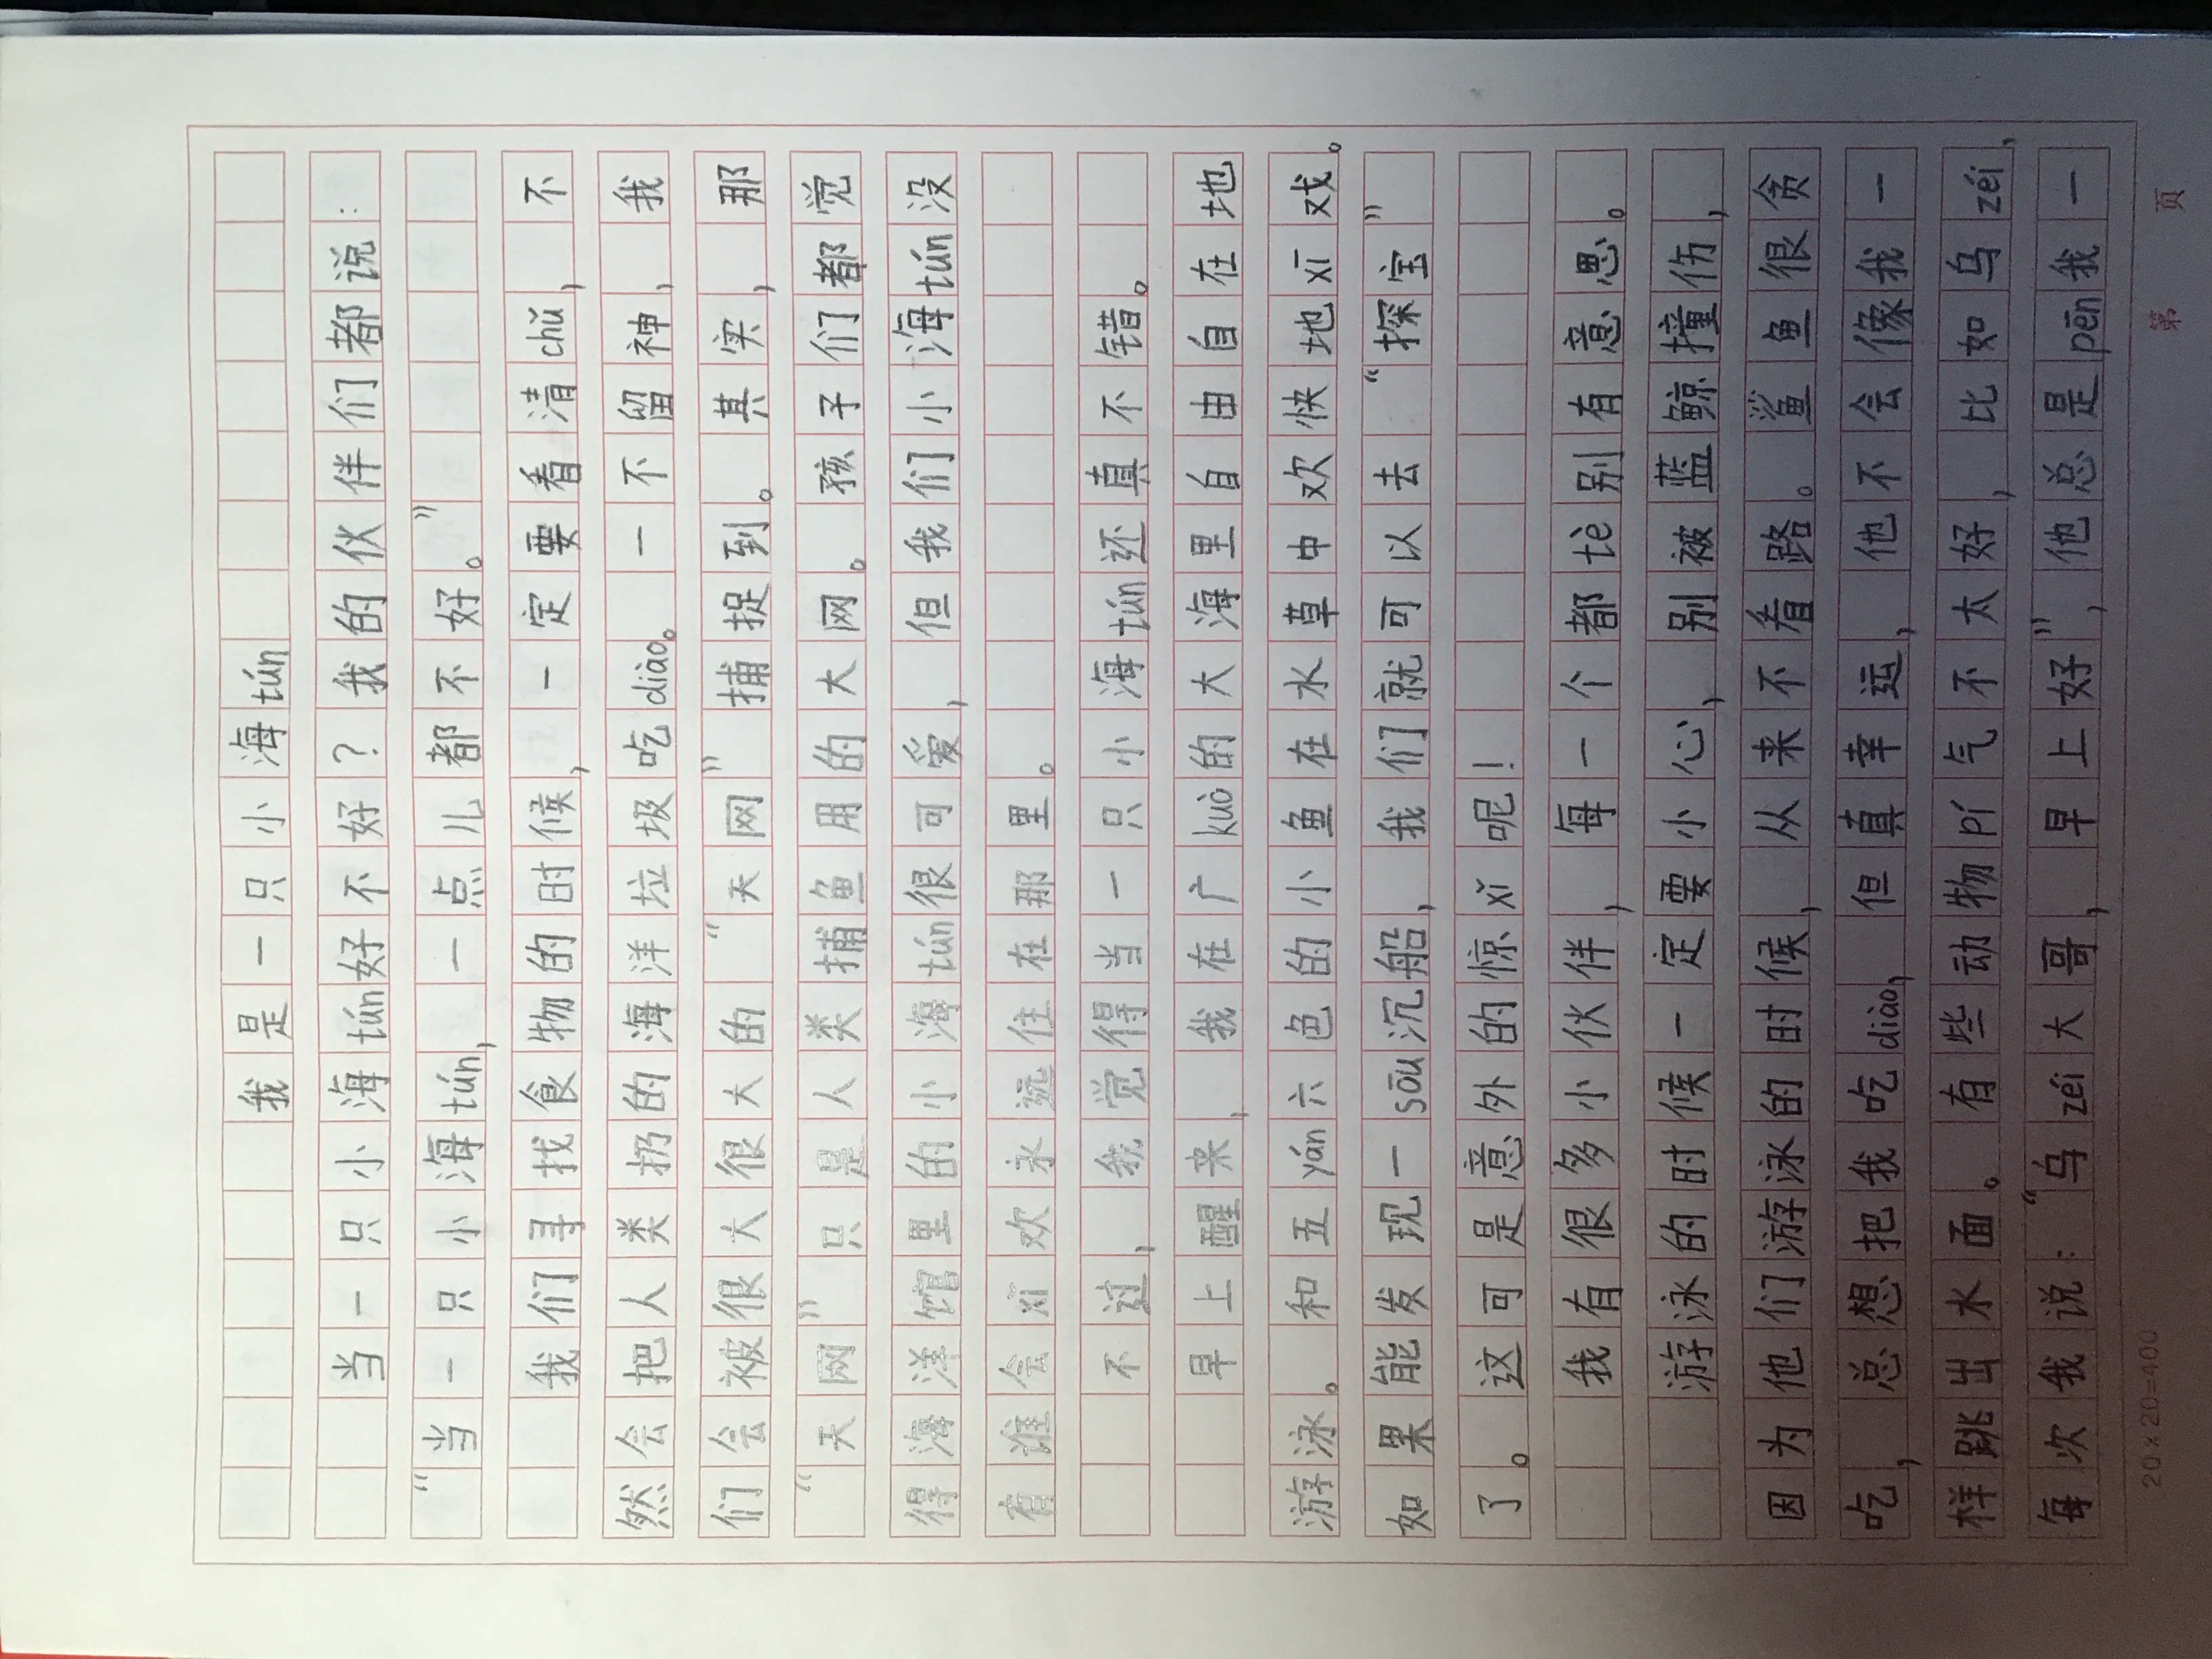 我是一只小海tún
当一只小海tún好不好？我的伙伴们都说：
“当一只小海tún，一点儿都不好。”
我们寻找食物的时候，一定要看清chǔ，不
然会把人类扔的海洋垃圾吃diào。一不留神，我
们会被很大很大的“天网”捕捉到。其实，那
“天网”只是人类捕鱼用的大网。孩子们都觉
得海洋馆里的小海tún很可爱，但我们小海tún没
有谁会xǐ欢永远住在那里。
不过，我觉得当一只小海tún还真不错。
早上醒来，我在广kuò的大海里自由自在地
游泳。和五yán六色的小鱼在水草中欢快地xī戏。
如果能发现一sōu沉船，我们就可以去“探宝”
了。这可是意外的惊xǐ呢！
我有很多小伙伴，每一个都tè别有意思。
游泳的时候一定要小心，别被蓝鲸撞伤，
因为他们游泳的时候，从来不看路。鲨鱼很贪
吃，总想把我吃diào，但真幸运，他不会像我一
样跳出水面。有些动物pí气不太好，比如乌zéi，
每次我说：“乌zéi大哥，早上好”，他总是pēn我一
20×20=400
第 页